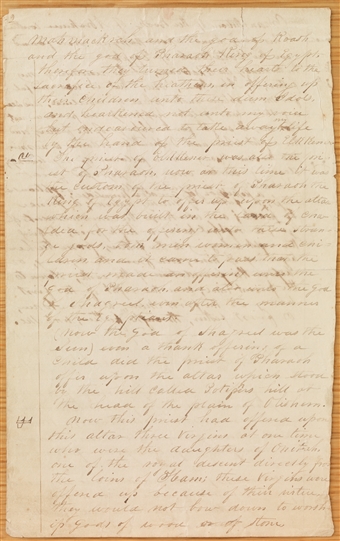 and the god of Pharaoh King of Egypt
therefore they turned their hearts to the
sacrifice of the heathens in offering up
their children unto these dum Idols
and hearkened not unto my voice
but endeavoured to take away my life
by the hand of the priest of Elkenah
the priest of Elkenah was also the pri
est of Pharaoh, now at this time it was
the custom of the priest of Pharaoh the
King of Egypt to offer up upon the altar
which was built in the land of Chal
dea for the offering unto these stran
ge gods both men, women and chi
ldren and it came to pass that the
priest made an offering unto the
god of Pharaoh and also unto the God
of Shagreel even after the manner
of the
Now the God of Shagreel was the
Sun, even a thank offering of a
child did the priest of Pharaoh
offer upon the altar which stood
by the hill called Potiphers hill at
the head of the plain of Olishem
Now this priest had offered upon
this altar three virgins at one time
who were the daughters of Onitah
one of the royal descent directly from
the loins of Ham, these virgins were
offered up because of their virtue
they would not bow down to worsh
ip Gods of wood or of stone